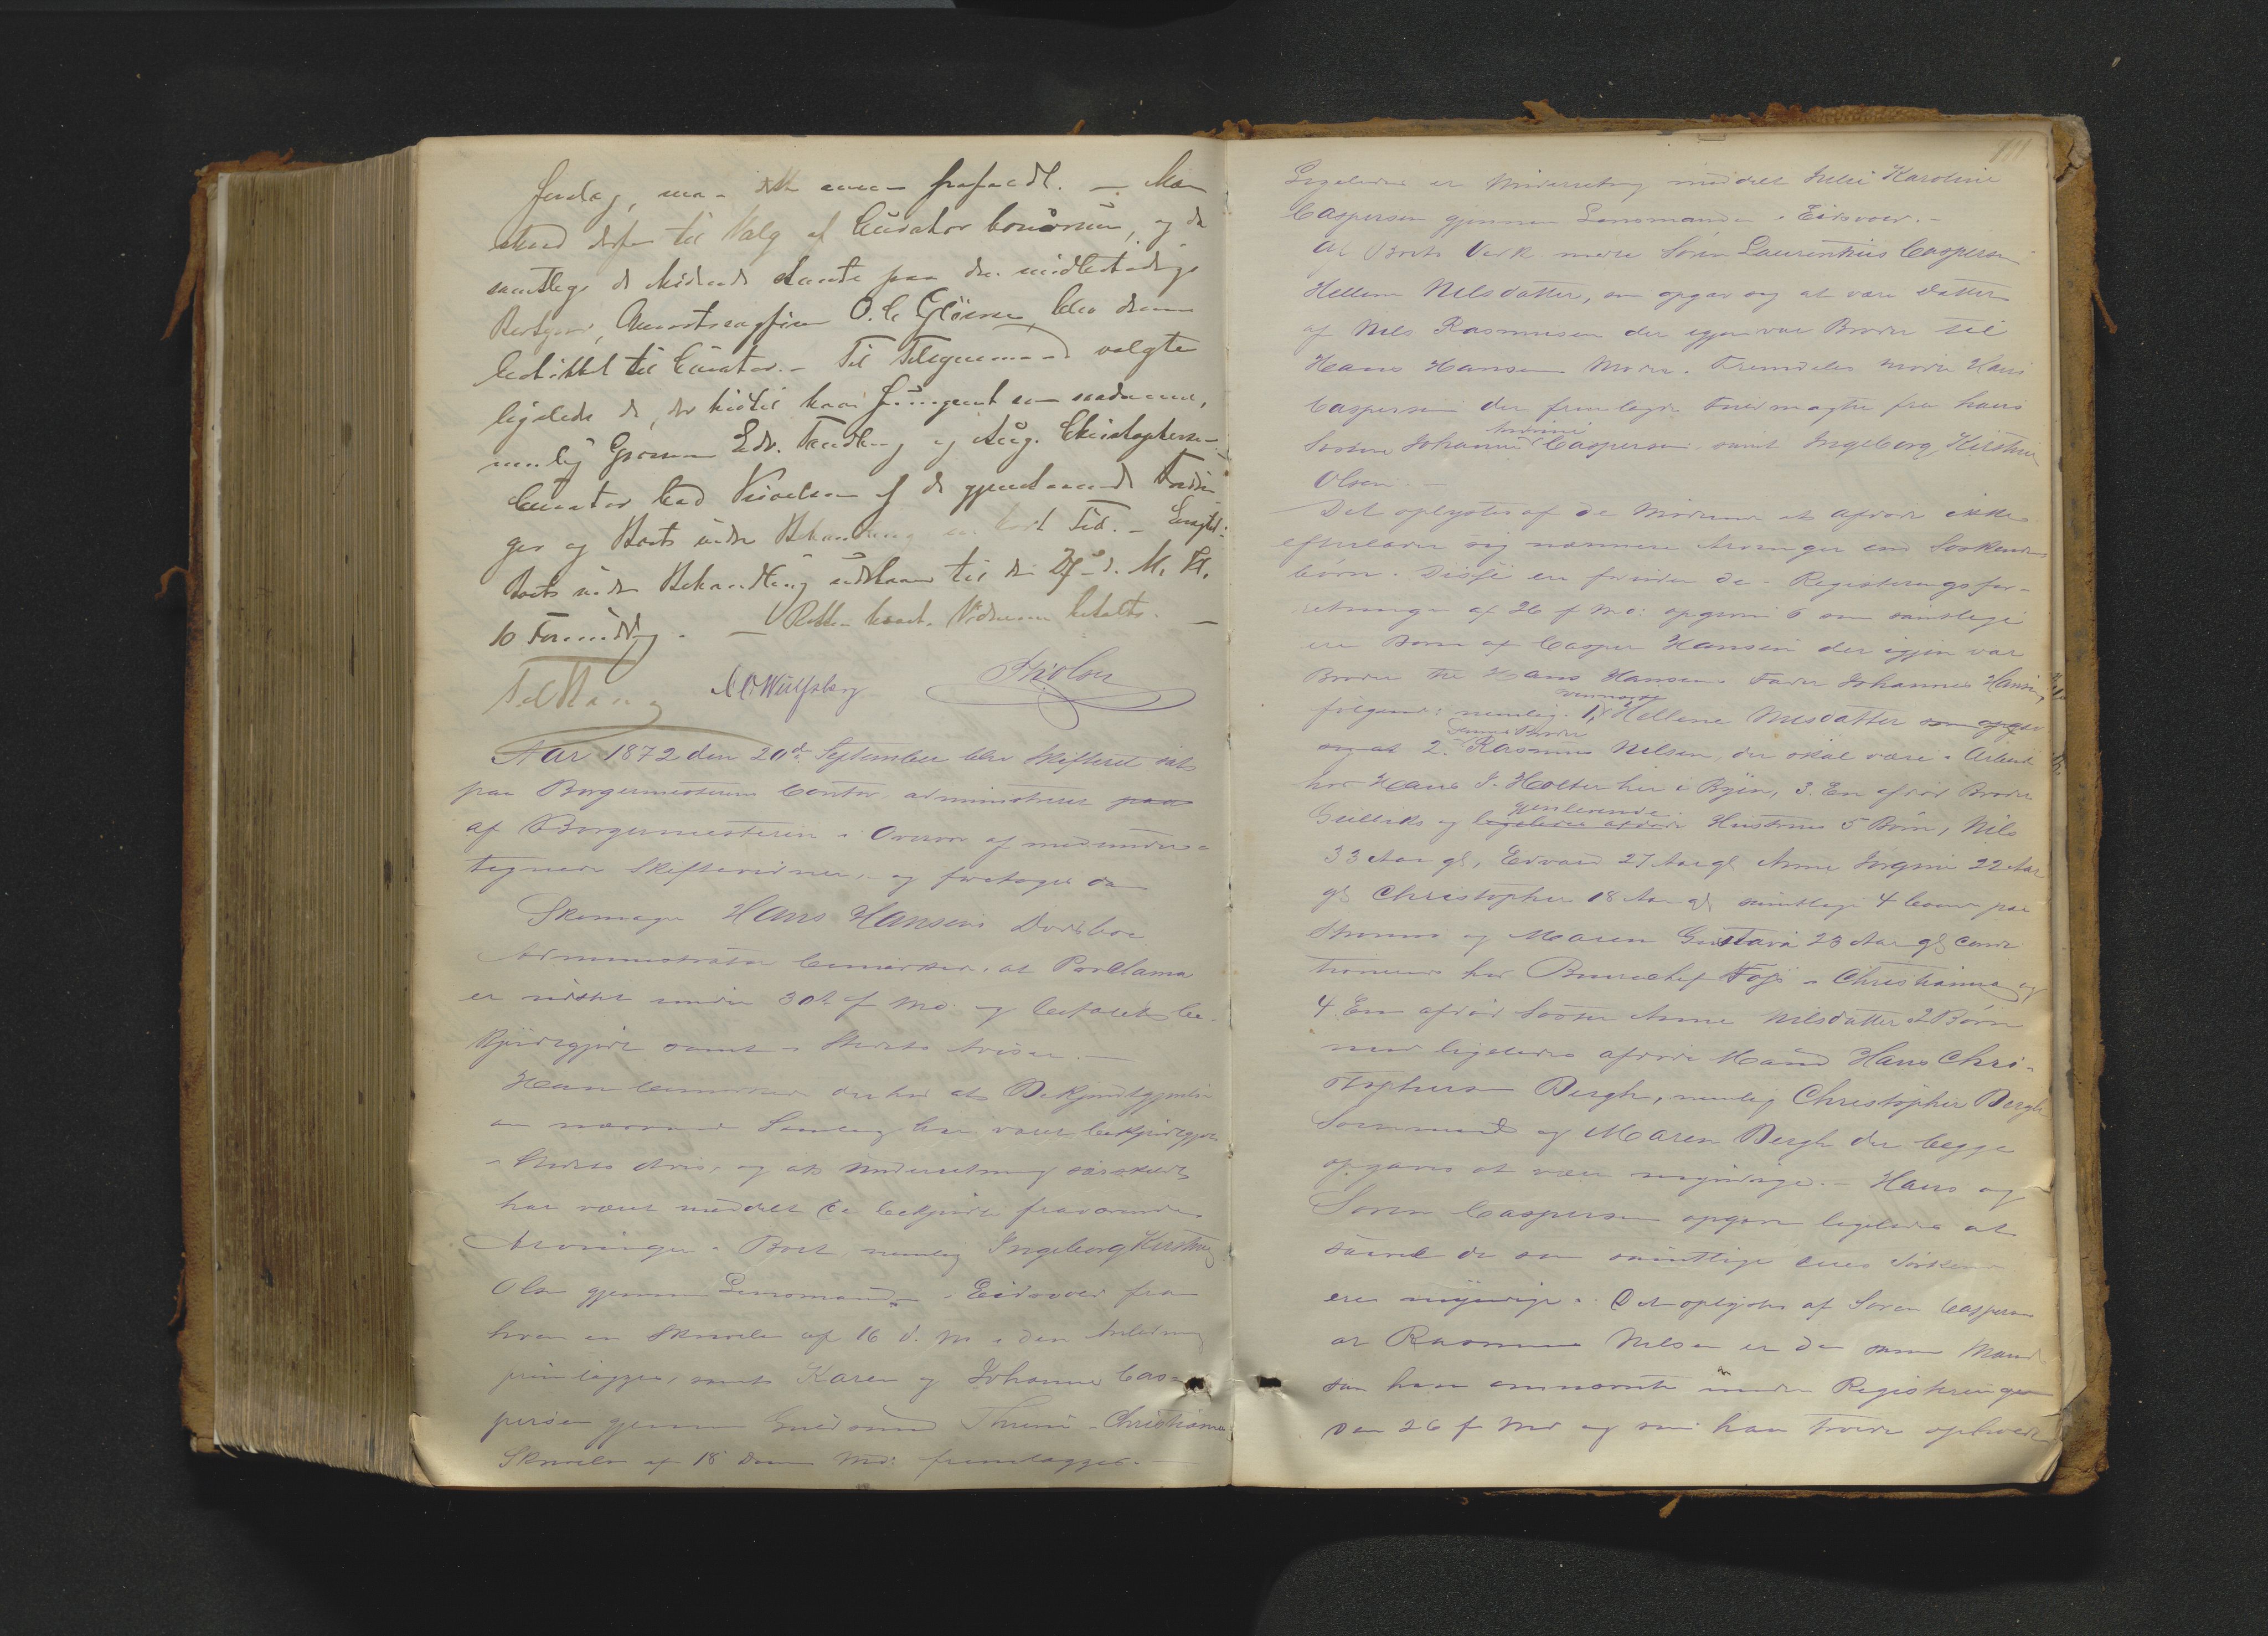 stod derfor til Valg af Curator bonorum, og da
samtlige de mødende stemte paa den midlertidige
Bestyrer, O. C. blev denne
beskikket til Curator. – Til Tilsynsmænd valgte
ligeledes de, der hidtil have fungeret som saadanne,
nemlig Edv. og Aug. Christophersen
Curator bad af de gjenstaaende Fordrin-
ger og Boets Behandling en kort Tid. –
Boets Behandling udsat til den 27 d. M. Kl.
10 Formiddag. – Retten hævet. Vidnerne betalte. –
Wulfsberg
Aar 1872 den 20de September blev Skifteret sat
paa Borgermesterens Contor administreret paa
af Borgermesteren i Overvær af medunder-
tegnede Skiftevidner, og foretoges da
Skomager Hans Hansens Dødsbo
Administrator bemærker, at Proclama
er udstedt under 30te f Md. og befalet be-
kjendtgjort samt i Stedets Aviser. –
Han bemærkede derhos at Bekjendtgjørelse
om nærværende Samling har været bekjendtgjort
i Stedets Avis, og at Underretning særskildt
har været meddelt de bekjendte fraværende
Arvinger i Boet, nemlig Ingeborg Kirstine
Olsen gjennem Lensmanden i Eidsvold fra
hvem en Skrivelse af 16 d. M. i den Anledning
fremlægges, samt Karen og Johanne Cas-
persen gjennem Christiania
Skrivelse af 18 Md: fremlægges. –
111
Ligeledes er Underretning meddelt Karoline
Caspersen gjennem Lensmanden i Eidsvold. –
Al Boets Vegne mødte Søren Laurentius Caspersen
Hellene Nilsdatter, som opgav sig at være Datter
af Nils Rasmussen der igjen var Broder til
Hans Hansens Moder. Fremdeles mødte Hans
Caspersen der fremlagde Fuldmagter fra hans
Søstre Johanne Caspersen samt Ingeborg Kirstine
Olsen. –
Det oplystes af de Mødende at afdøde ikke
efterlader sig nærmere Arvinger end Søskende-
børn. Disse ere foruden de i Registreringsfor-
retningen af 26 f Md: opgivne 6 som samtlige
ere Børn af Casper Hansen der igjen var
Broder til Hans Hansens Fader Johannes Hansen,
følgende: nemlig. 1, Hellene Nilsdatter som opgav
sig at 2. Rasmus Nilsen, der skal være i Arbeide
hos Hans J. Holter her i Byen, 3. En afdød Broder
Gulliks og gjenlevende ligeledes afdøde Hustrues 5 Børn, Nils
33 Aar gl, Edvard 27 Aar gl Anne Jørgine 22 Aar
gl Christopher 18 Aar gl samtlige 4 boende paa
Strømsø og Maren Gustava 23 Aar gl condi-
tionerende hos Bureauchef i Christiania og
4. En afdød Søster Anne Nilsdatter 2 Børn
med ligeledes afdøde Mand Hans Chri-
stophersen Bergh, nemlig Christopher Bergh
Sømmand og Maren Bergh der begge
opgaves at være myndige. – Hans og
Søren Caspersen opgave ligeledes at
saavel de som samtlige deres Søskende
ere myndige. Det oplystes af Søren Caspersen
at Rasmus Nilsen er den samme Mand
som han omnævnte under Registreringen
den 26 f Md og som han troede opholdt